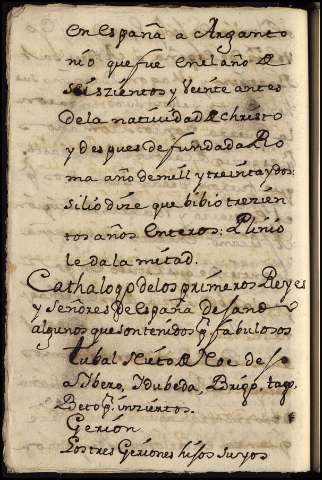 en España a Arganto
nio que fue en el año de
seiszientos y veinte antes
de la natiuidad de christo
y despues de fundada Ro
ma año de mill y treinta y dos:
silio dize que bibio trezien
tos años enteros: Plinio
le da la mitad.
Cathalogo de los primeros Reyes
y Señores de España dejando
algunos que son tenidos por fabulosos
tubal Nieto de Noe
a Ibero, Idubeda, Brigo, tago,
Beto inziertos.
Gerión
Los tres Geriones hijos suyos